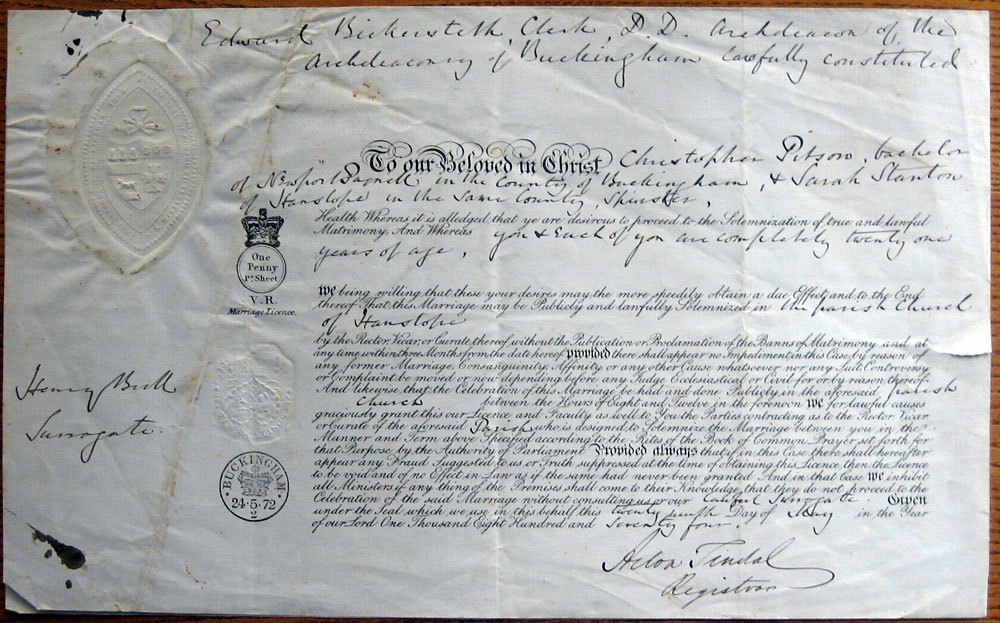 Edward Bickersteth, Clerk, D.D. Archdeacon of the
Archdeaconry of Buckingham lawfully constituted
To our Beloved in Christ Christopher Pitson, bachelor
of Newport Pagnell in the County of Buckingham, & Sarah Stanton
of Hanslope in the Same County, Spinster,
Health Whereas it is alledged that ye are desirous to proceed to the Solemnization of true and lawful
Matrimony, And Whereas you & Each of you are completely twenty one
years of age,
One
Penny
Pr Sheet
V.R.
Marriage Licence.
We being willing that these your desires may the more speedily obtain a due Effect, and to the End
thereof That this Marriage may be Publicly and lawfully Solemnized in the parish Church
of Hanslope
by the Rector, Vicar, or Curate thereof without the Publication or Proclamation of the Banns of Matrimony and at
any time within three Months from the date hereof provided there shall appear no Impediment in this Case by reason of
any former Marriage, Consanguinity, Affinity or any other Cause whatsoever nor any Suit, Controversy
or Complaint be moved or now depending before any Judge Ecclesiastical or Civil for or by reason thereof.
And likewise that the Celebration of this Marriage be had and done Publicly in the aforesaid parish
Church between the Hours of Eight and Twelve in the forenoon We for lawful causes
graciously grant this our Licence and Faculty as well to You the Parties contracting as to the Rector Vicar
or Curate of the aforesaid Parish who is designed to Solemnize the Marriage between you in the
Manner and Form above Specified according to the Rites of the Book of Common Prayer set forth for
that Purpose by the Authority of Parliament Provided always that if in this Case there shall hereafter
appear any Fraud Suggested to us or Truth suppressed at the time of obtaining this Licence then the Licence
to be void and of no Effect in Law as if the same had never been granted And in that case We inhibit
all Ministers if any thing of the Premises shall come to their Knowledge, that they do not proceed to the
Celebration of the said Marriage without consulting us or our Lawful Surrogate. Given
under the Seal which we use in this behalf this twenty ninth Day of May in the Year
of our Lord One Thousand Eight Hundred and Seventy four.
Henry Bull
Surrogate.
BUCKINGHAM
24·5·72
2
Acton Tindal
Registrar